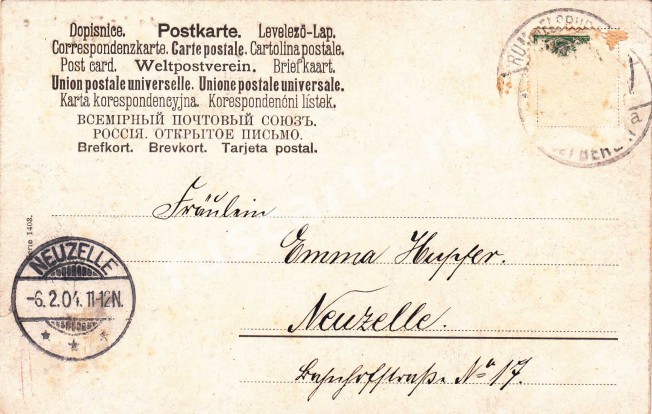 Dopisnice. Postkarte. Levelező-Lap.
Correspondenzkarte. Carte postale. Cartolina postale.
Post card. Weltpostverein. Briefkaart.
Union postale universelle. Unione postale universale.
Karta korespondencyjna. Korespondenčni listek.
ВСЕМІРНЫЙ ПОЧТОВЫЙ СОЮЗЪ.
РОССІЯ. ОТКРЫТОЕ ПИСЬМО.
Brefkort. Brevkort. Tarjeta postal.
a
Fräulein
Emma Hupfer.
Neuzelle.
Bahnhofstraße No 17.
1408.
NEUZELLE
-6.2.04. 11-12N.